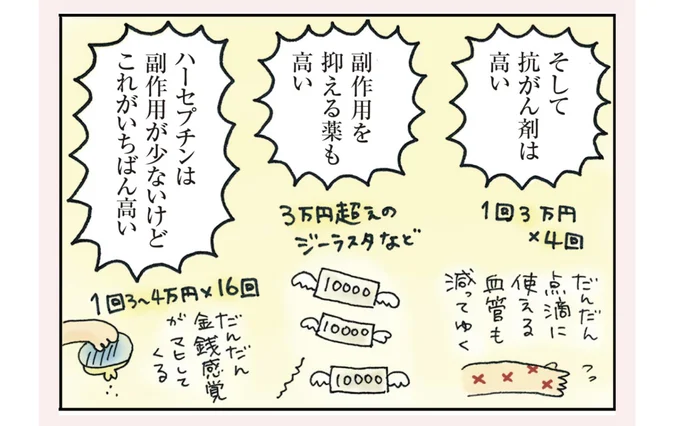 そして
抗がん剤は
高い
1回3万円
×4回
だんだん
点滴に
使える
血管も
減ってゆく
副作用を
抑える薬も
高い
3万円超えの
ジーラスタなど
10000
10000
10000
ハーセプチンは
副作用が少ないけど
これがいちばん高い
1回3〜4万円×16回
だんだん
金銭感覚
がマヒして
くる